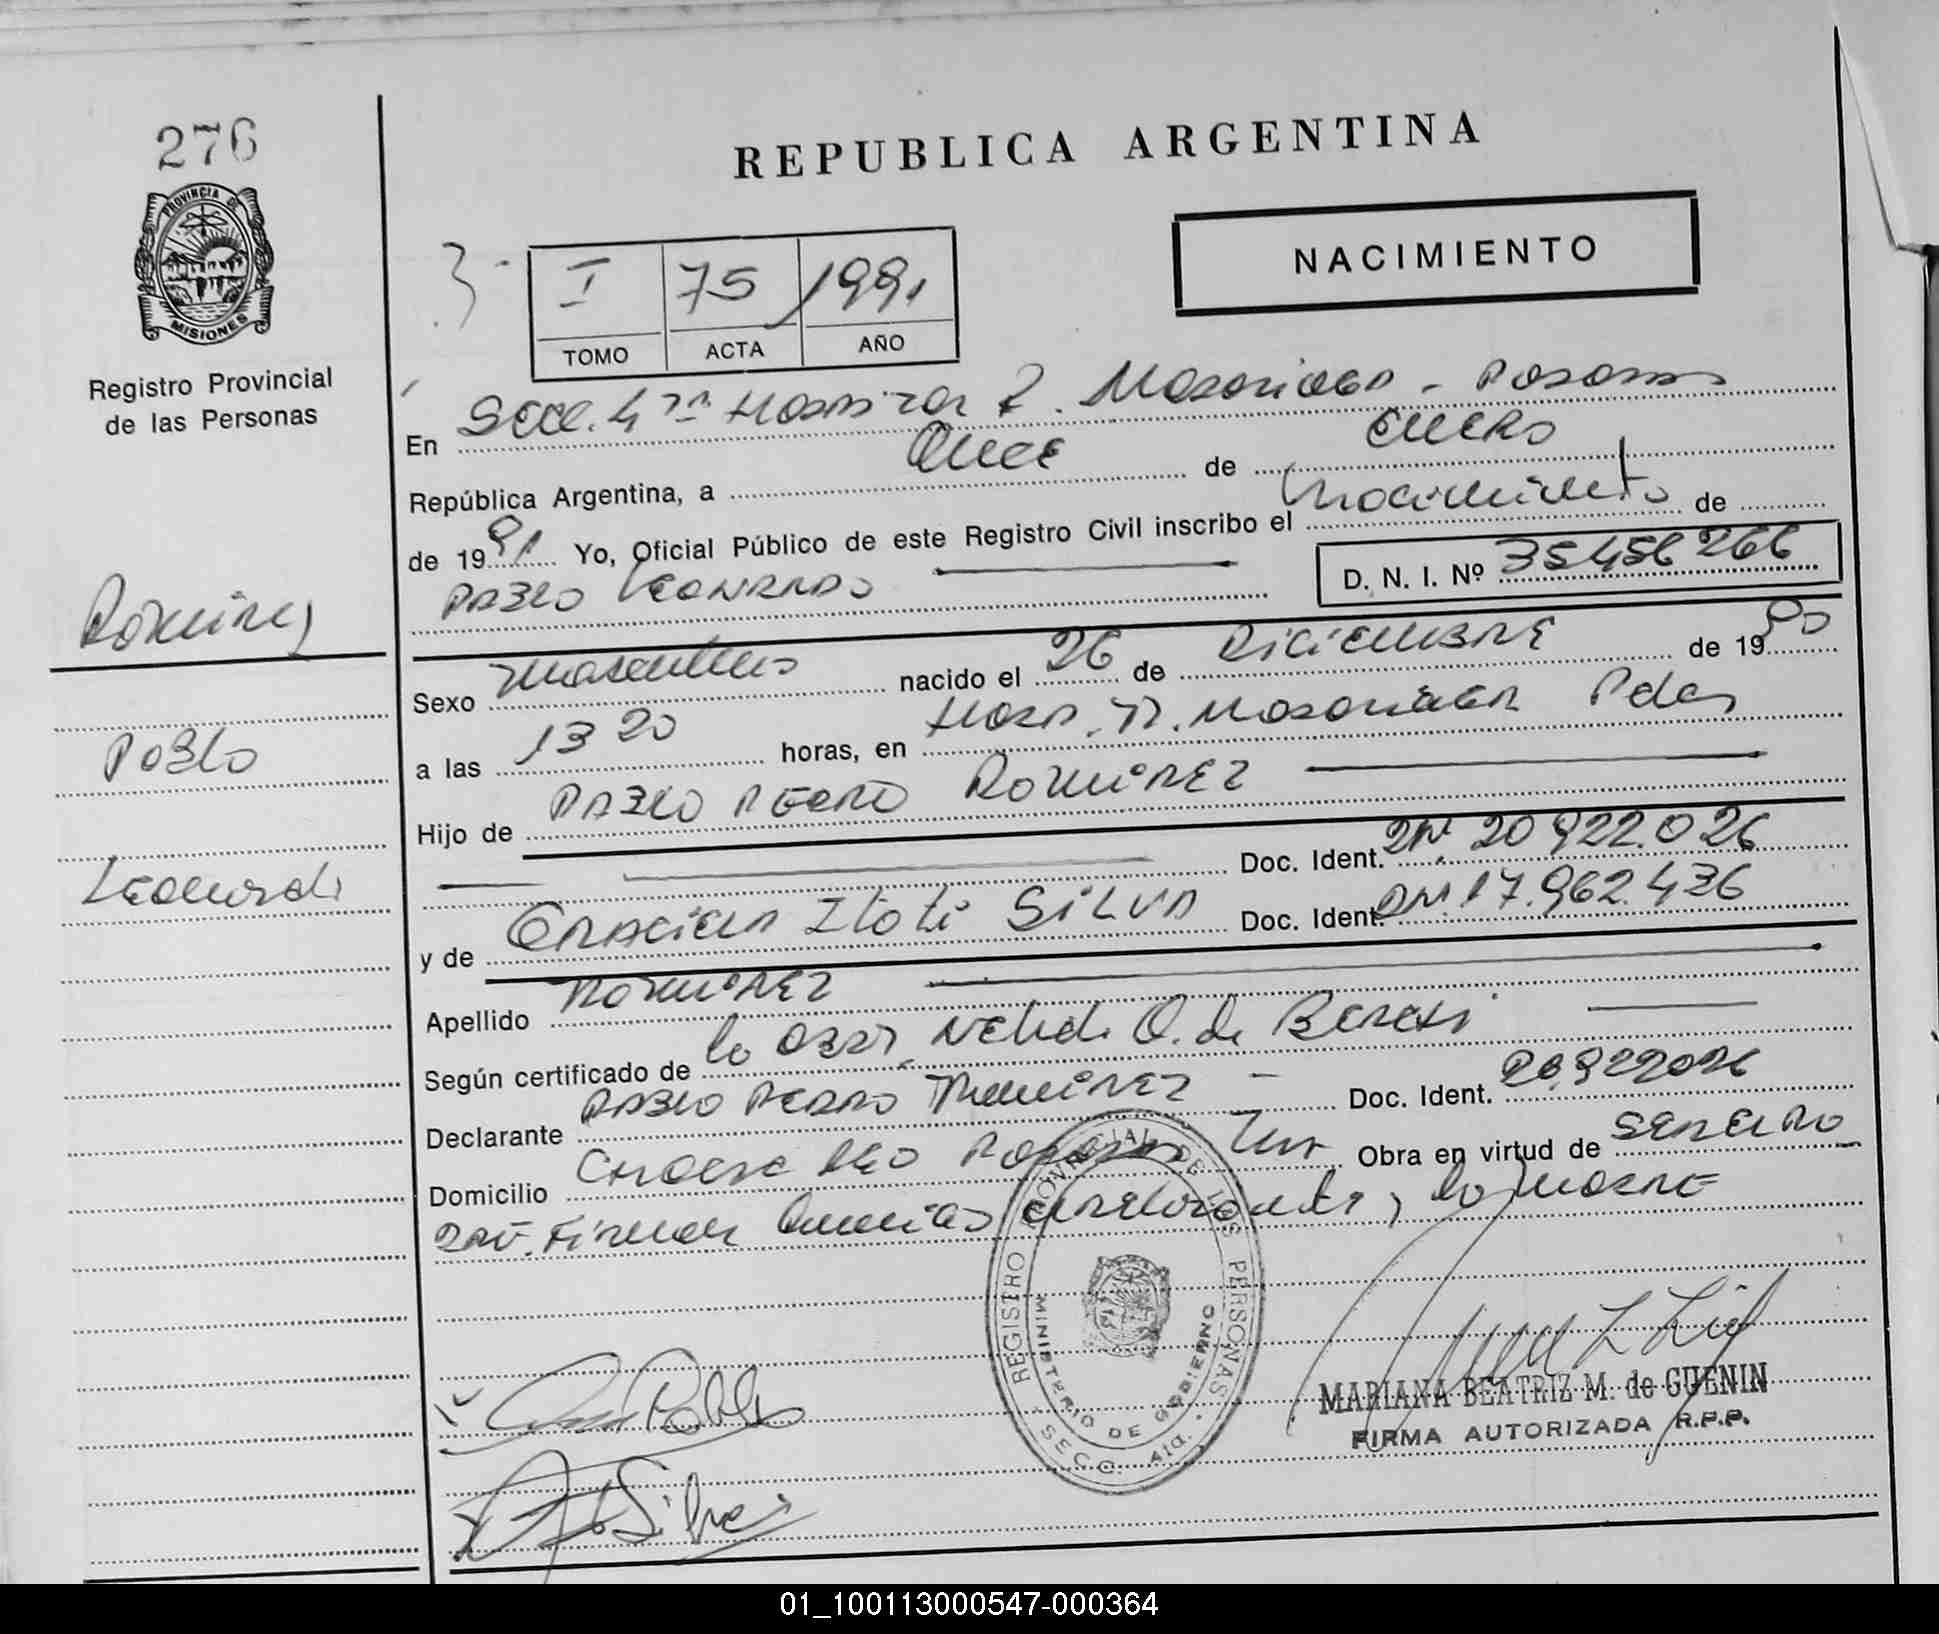 276
PROVINCIA DE
MISIONES
Registro Provincial
de las Personas
REPUBLICA ARGENTINA
NACIMIENTO
I 75 1991
TOMO ACTA AÑO
En Secc. 4ta Hospital R. Madariaga - Posadas
República Argentina, a Once de Enero
de 1991 Yo, Oficial Público de este Registro Civil inscribo el nacimiento de
PABLO LEONARDO
D. N. I. Nº 35.456266
Ramirez
Pablo
Leonardo
Sexo masculino nacido el 26 de Diciembre de 1990
a las 13 20 horas, en Hosp. R. Madariaga Pdas
Hijo de PABLO PEDRO RAMIREZ
Doc. Ident. DNI. 20.922.026
y de GRACIELA Itati SILVA Doc. Ident. DNI 17.962.436
Apellido RAMIREZ
Según certificado de la Obst. Nelida O. de
Declarante PABLO PEDRO RAMIREZ - Doc. Ident. 20.922026
Domicilio Obra en virtud de
Firman declarante, la MADRE
REGISTRO PROVINCIAL DE LAS PERSONAS
MINISTERIO DE GOBIERNO
SECC. 4ta.
Silva
MARIANA BEATRIZ M. de GUENIN
FIRMA AUTORIZADA R.P.P.
01_100113000547-000364